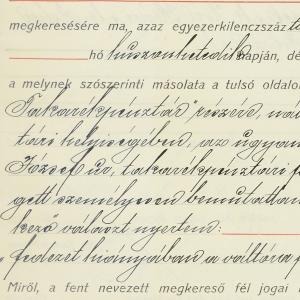 megkeresésére ma, azaz egyezerkilenczszáz
hó huszonhetedik napján, dé
a melynek szószerinti másolata a tulsó oldalo
Takarékpénztár" részére, na
tári helyiségében, az ugyan
József ur, takarékpénztári f
gett személyesen bemutattam
kező választ nyertem:
fedezet hiányában a váltóra
Miről, a fent nevezett megkereső fél jogai